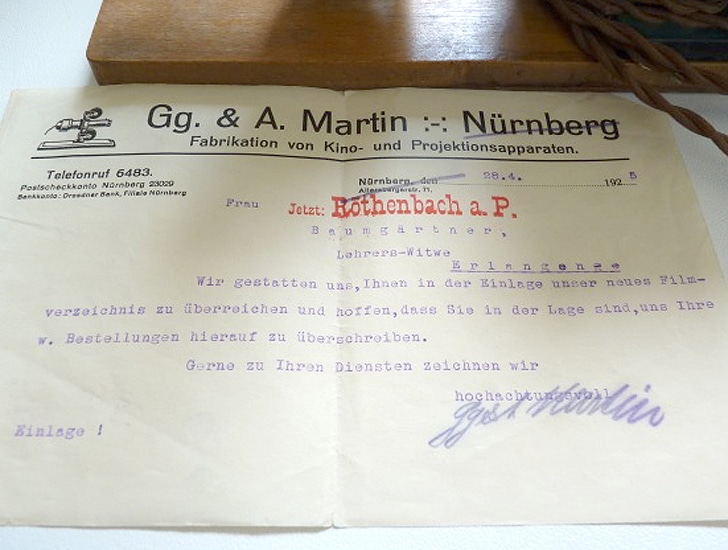 Gg. & A. Martin :-: Nürnberg
Fabrikation von Kino- und Projektionsapparaten.
Telefonruf 6483.
Postscheckkonto Nürnberg 23029
Bankkonto: Dresdner Bank, Filiale Nürnberg
Nürnberg, den 28.4. 1925
Allersbergerstr. 71.
Frau Jetzt: Röthenbach a. P.
Baumgärtner,
Lehrers-Witwe
Erlangen
Wir gestatten uns, Ihnen in der Einlage unser neues Film-
verzeichnis zu überreichen und hoffen, dass Sie in der Lage sind, uns Ihre
w. Bestellungen hierauf zu überschreiben.
Gerne zu Ihren Diensten zeichnen wir
hochachtungsvoll
Martin
Einlage !